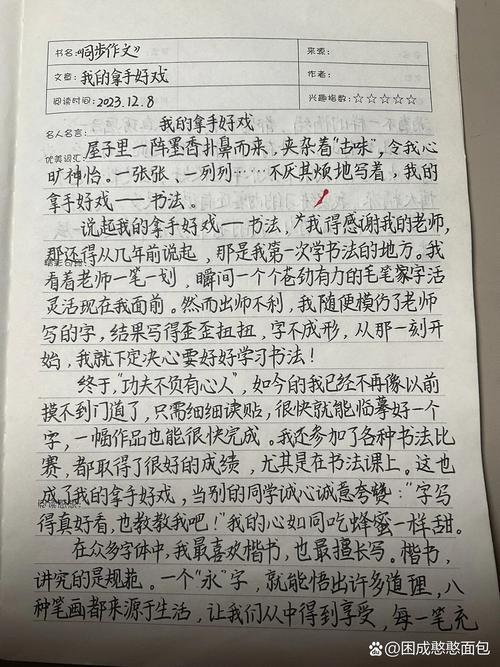 书名:《同步作文》
来源:
文章:我的拿手好戏
作者:
阅读时间:2023.12.8
兴趣指数:☆☆☆☆☆
我的拿手好戏
名人名言:
屋子里一阵墨香扑鼻而来，夹杂着“古味”，令我心
优美词汇:
旷神怡。一张张、一列列……不厌其烦地写着，我的
拿手好戏——书法。
一说起我的拿手好戏——书法，我得感谢我的老师，
那还得从几年前说起，那是我第一次学书法的地方。我
看着老师一笔一划，瞬间一个个苍劲有力的毛笔字活
灵活现在我面前。然而出师不利，我随便模仿了老师
写的字，结果写得歪歪扭扭，字不成形，从那一刻开
始，我就下定决心要好好学习书法！
终于，“功夫不负有心人”，如今的我已经不再像以前
摸不到门道了，只需细细读贴，很快就能临摹好一个
字，一幅作品也能很快完成。我还参加了各种书法比
赛，都取得了很好的成绩，尤其是在书法课上。这也
成了我的拿手好戏，当别的同学诚心诚意夸赞：“字写
得真好看，也教教我吧！”我的心如同吃蜂蜜一样甜。
在众多字体中，我最喜欢楷书，也最擅长写。楷书，
讲究的是规范。一个“永”字，就能悟出许多道理，八
种笔画都来源于生活，让我们从中得到享受，每一笔充
@困成憨憨面包